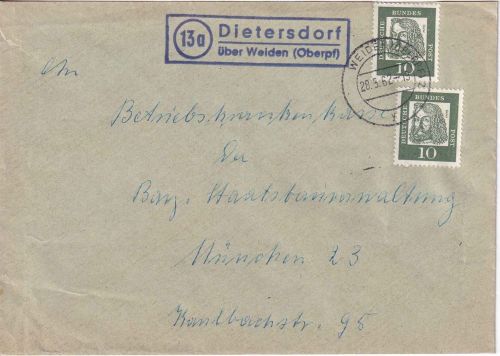 13a
Dietersdorf
über Weiden (Oberpf)
DEUTSCHE BUNDES POST
10
WEIDEN
28.5.62
DEUTSCHE BUNDES POST
10
An
Betriebskrankenkasse
Der
Bay. Staatsbauverwaltung
München 23
95